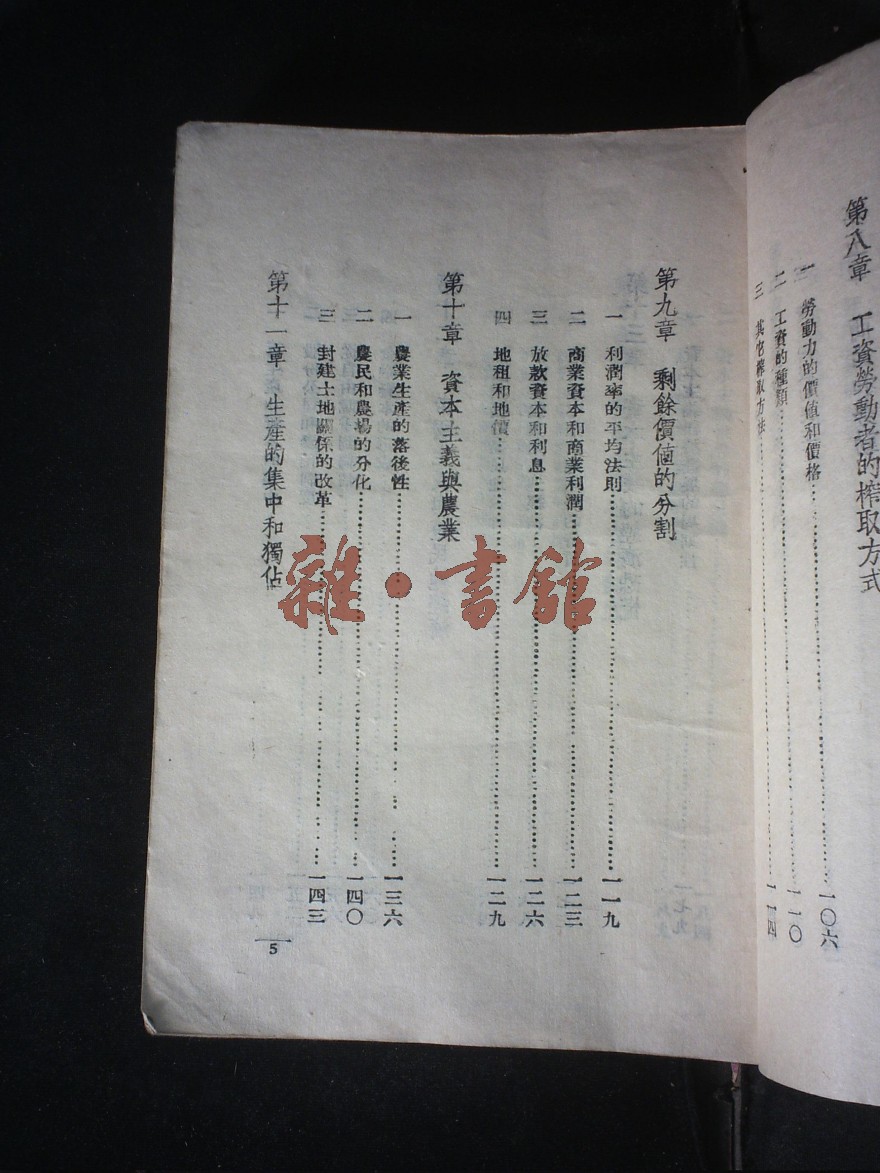 第八章　工資勞動者的榨取方式
一　勞動力的價值和價格……一〇六
二　工資的種類……一一〇
三　其它榨取方法……一一四
第九章　剩餘價值的分割
一　利潤率的平均法則……一一九
二　商業資本和商業利潤……一二三
三　放款資本和利息……一二六
四　地租和地價……一二九
第十章　資本主義與農業
一　農業生產的落後性……一三六
二　農民和農場的分化……一四〇
三　封建土地關係的改革……一四三
第十一章　生產的集中和獨佔
5
雜·書館